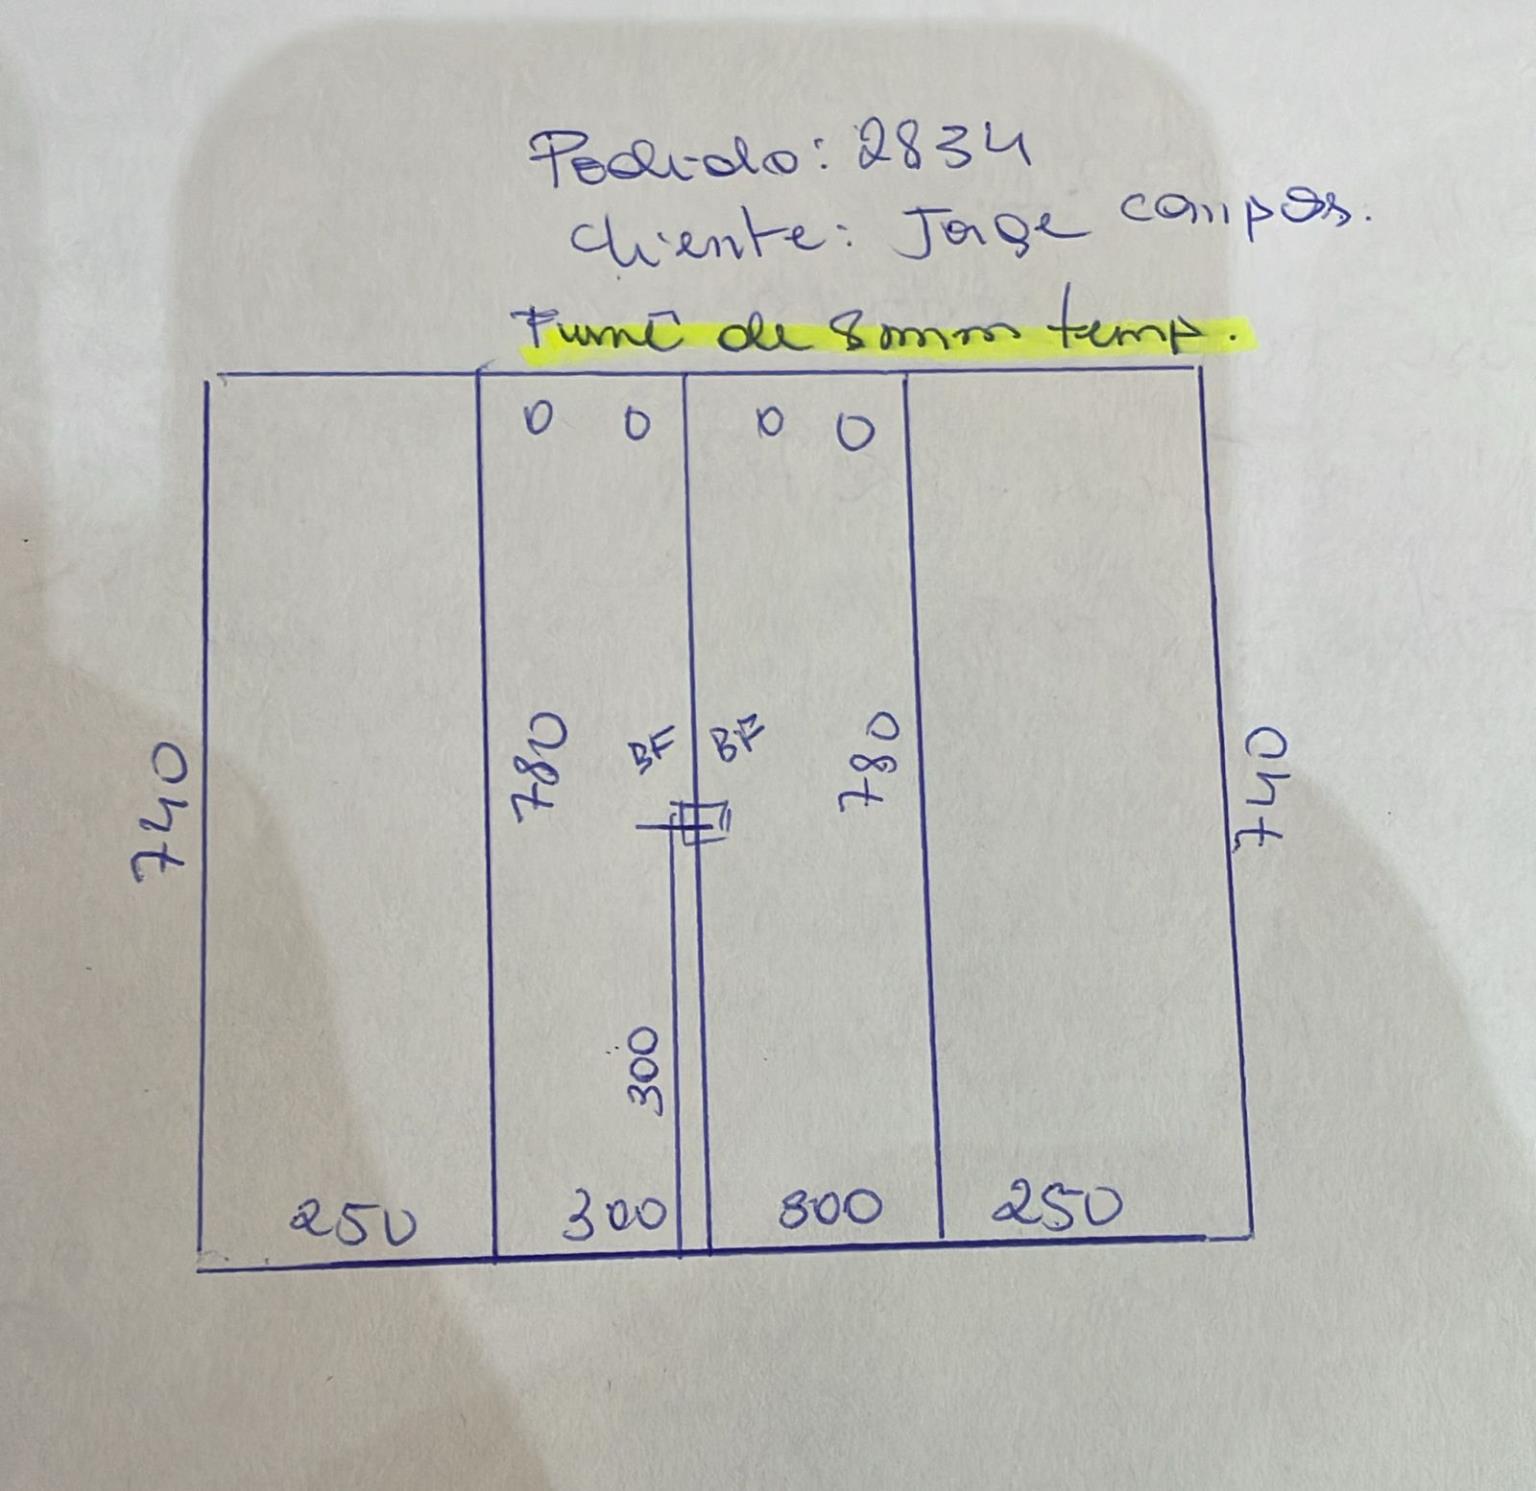 Pedido: 2834
Cliente: Jorge campos.
Fumê de 8mm temp.
0 0 0 0
740 780 BF BF 780 740
300
250 300 300 250